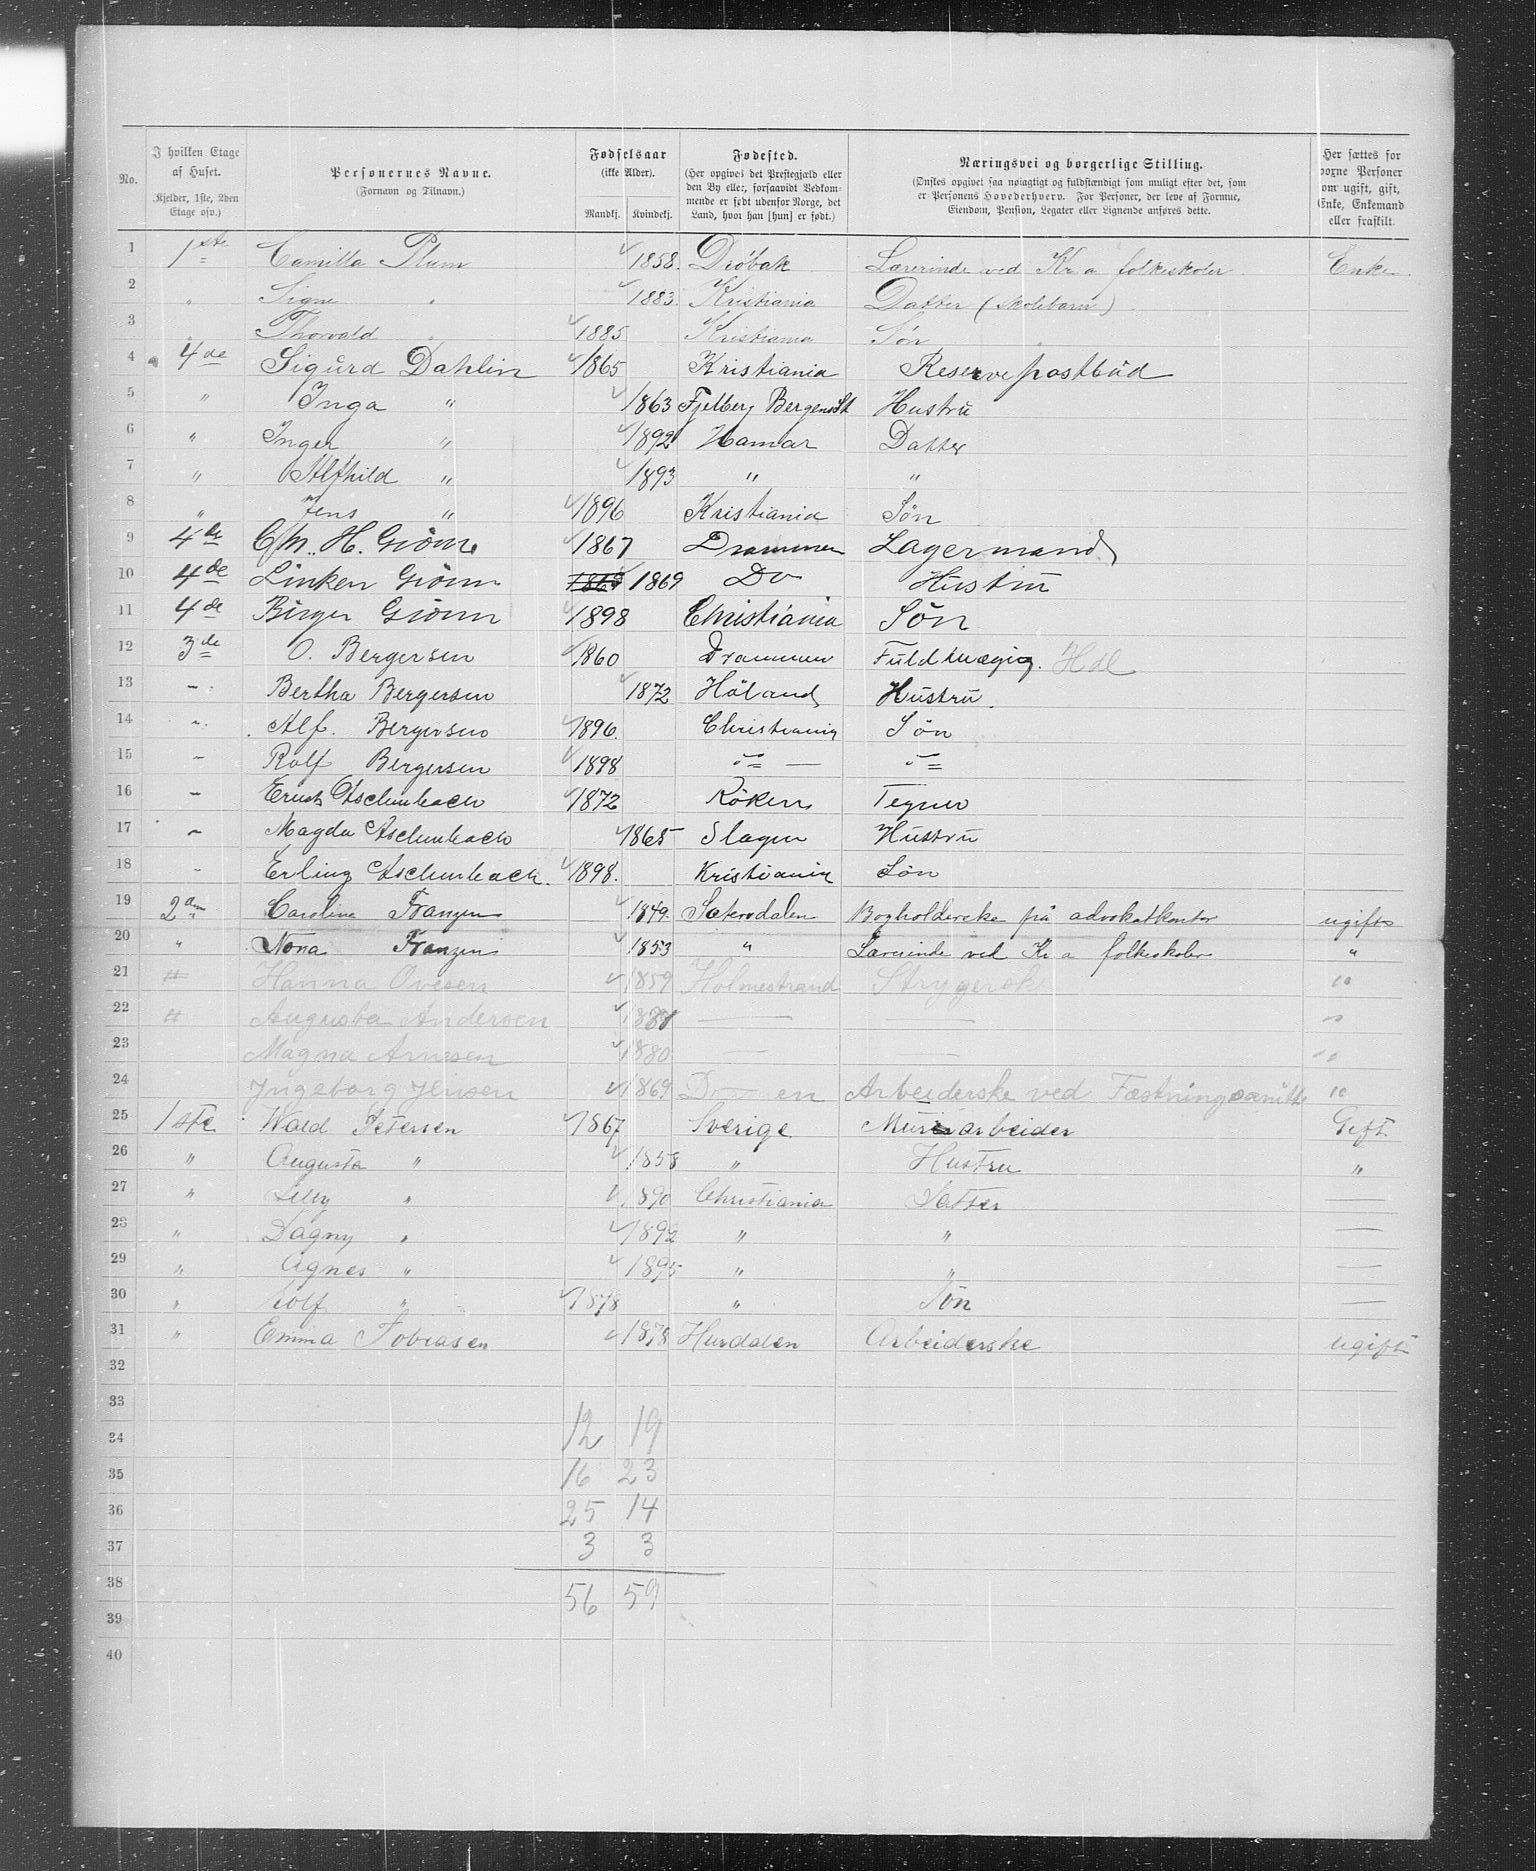 No. | I hvilken Etage af Huset. (Kjelder, 1ste, 2den Etage osv.) | Personernes Navne. (Fornavn og Tilnavn.) | Fødselsaar (ikke Alder). Mandkj. Kvindekj. | Fødested. (Her opgives det Prestegjæld eller den By eller, forsaavidt Vedkommende er født udenfor Norge, det Land, hvor han [hun] er født.) | Næringsvei og borgerlige Stilling. (Ønskes opgivet saa nøiagtigt og fuldstændigt som muligt efter det, som er Personens Hovederhverv. For Personer, der leve af Formue, Eiendom, Pension, Legater eller Lignende anføres dette. | Her sættes for voxne Personer om ugift, gift, Enke, Enkemand eller fraskilt.
1 1ste Camilla Plum 1858. Drøbak Lærerinde ved Kr.a folkeskoler Enke
2 " Signe " 1883. Kristiania Datter (skolebarn)
3 " Thorvald " 1885 Kristiania Søn "
4 4de Sigurd Dahlin 1865 Kristiania Reservepostbud
5 " Inga " 1863 Fjelberg Bergens St Hustru
6 " Inger " 1892 Hamar Datter
7 " Alfhild " 1893 " "
8 " Jens " 1896 Kristiania Søn
9 4de H. Grönn 1867 Drammen Lagermand
10 4de Linken Grönn 1869 Do Hustru
11 4de Birger Grönn 1898 Christiania Søn
12 3de O. Bergersen 1860 Drammen Fuldmægtig. Hdl
13 - Bertha Bergersen 1872 Höland Hustru.
14 - Alf. Bergersen 1896. Christiania Søn
15 - Rolf Bergersen 1898 -"- -"-
16 - Ernst Aschenbach 1872 Röken Tegner
17 - Magda Aschenbach 1865 Slagen Hustru
18 - Erling Aschenbach. 1898. Kristiania Søn
19 2den Caroline Franzen 1849. Sætersdalen Bogholderske på advokatkontor ugift
20 " Nona Franzen 1853 " Lærerinde ved Kr a folkeskoler "
21 " Hanna Ovesen 1859 Holmestrand Strygersk "
22 " Augusta Andersen 188 — — "
23 Magna Arnesen 1880 — — "
24 Ingeborg Jensen 1869 Arbeiderske ved "
25 1ste Wald Petersen 1867 Sverige Murarbeider Gift
26 " Augusta " 1858 " Hustru "
27 " Lilly " 1890 Christiania Datter —
28 " Dagny " 1892 " " —
29 " Agnes " 1895 " " —
30 " Rolf " 1898 " Søn —
31 " Emma Tobiasen 1878 Hurdalen Arbeiderske ugift
32
33
12 19
34
35 16 23
36 25 14
37 3 3
38 56 59
39
40